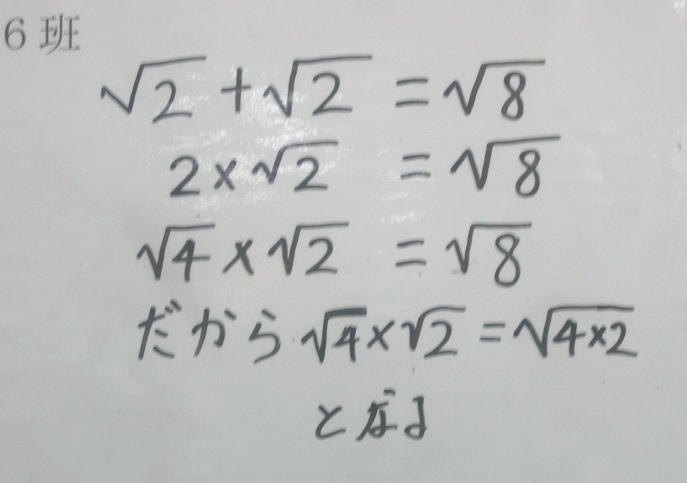 6班
√2 + √2 = √8
2×√2 = √8
√4 × √2 = √8
だから √4×√2 = √4×2
となる